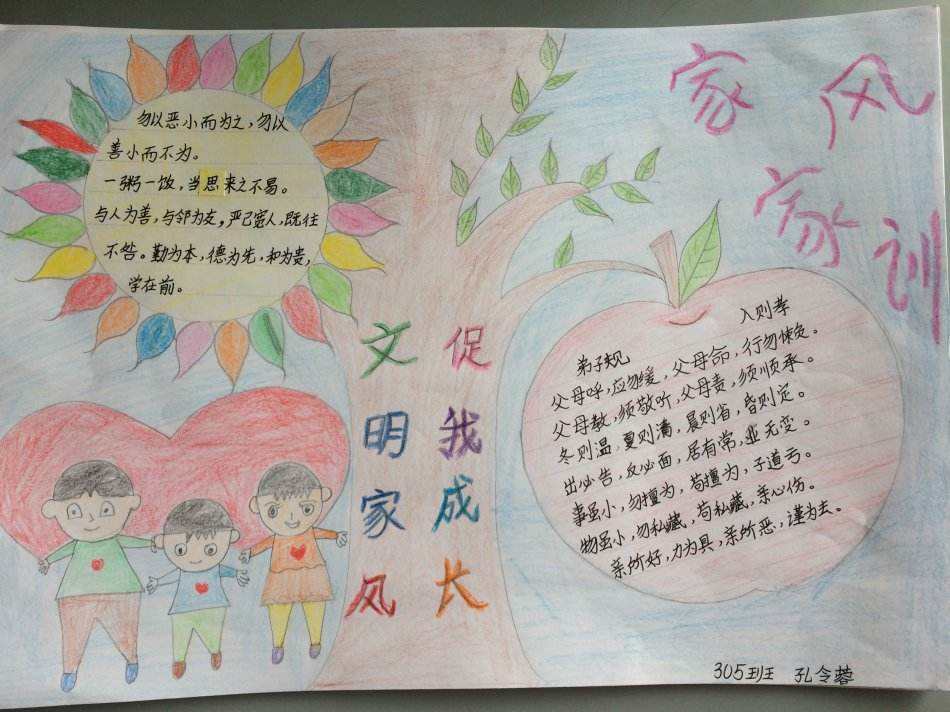 家风
家训
勿以恶小而为之，勿以
善小而不为。
一粥一饭，当思来之不易。
与人为善，与邻为友，严己宽人，既往
不咎。勤为本，德为先，和为贵，
学在前。
文明家风
促我成长
弟子规
入则孝
父母呼，应勿缓，父母命，行勿懒。
父母教，须敬听，父母责，须顺承。
冬则温，夏则凊，晨则省，昏则定。
出必告，反必面，居有常，业无变。
事虽小，勿擅为，苟擅为，子道亏。
物虽小，勿私藏，苟私藏，亲心伤。
亲所好，力为具，亲所恶，谨为去。
305班 孔令蓉